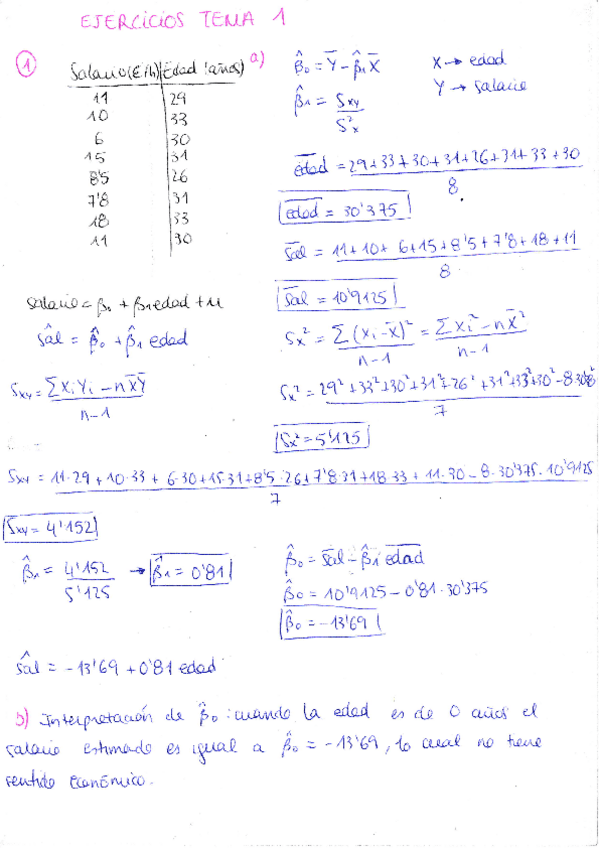 EJERCICIOS TEMA 1
1
Salario (€/h) Edad (años)
11 29
10 33
6 30
15 31
8'5 26
7'8 31
18 33
11 30
salario = β₀ + β₁edad + u
sâl = β̂₀ + β̂₁ edad
Sxy = Σ XiYi - nX̄Ȳ / n-1
a)
β̂₀ = Ȳ - β̂₁X̄
X → edad
β̂₁ = Sxy / S²x
Y → salario
edad = 29+33+30+31+26+31+33+30 / 8
edad = 30'375
sal = 11+10+6+15+8'5+7'8+18+11 / 8
sal = 10'9125
Sx² = Σ(xi-x̄)² / n-1 = Σxi² - nx̄² / n-1
Sx² = 29²+33²+30²+31²+26²+31²+33²+30²-8·30'38² / 7
Sx² = 5'125
Sxy = 11·29+10·33+6·30+15·31+8'5·26+7'8·31+18·33+11·30-8·30'375·10'9125 / 7
Sxy = 4'152
β̂₁ = 4'152 / 5'125 → β̂₁ = 0'81
β̂₀ = sal - β̂₁ edad
β̂₀ = 10'9125 - 0'81·30'375
β̂₀ = -13'69
sâl = -13'69 + 0'81 edad
b) Interpretación de β̂₀: cuando la edad es de 0 años el
salario estimado es igual a β̂₀ = -13'69, lo cual no tiene
sentido económico.